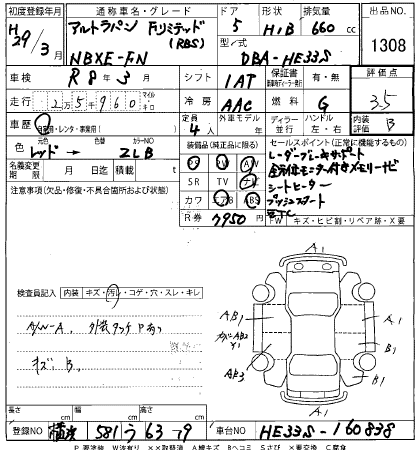 初度登録年月 通称車名・グレード ドア 形状 排気量 出品NO.
H29/3月 アルトラパン Fリミテッド (RBS) 5 HIB 660 cc
NBXE-FN 型/式 DBA-HE33S 1308
車検 R8年3月 シフト IAT 保証書 有・無 評価点
走行 25960 マイル キロ 冷房 AAC 燃料 G 3.5
車歴 自家用・レンタ・事業用( ) 定員 4人 外車モデル 年 ディーラー 並行 ハンドル 左・右 内装 B
色 元色 レッド→ 色替 カラーNO ZLB 装備品(純正品に限る) セールスポイント(正常に機能するもの)
PS PW AW レーダーブレーキサポート
名義変更期限 月 日 積載 t SR TV ナビ 全方位モニター付きメモリーナビ
シートヒーター
注意事項(欠品・修復・不具合箇所および状態) カワ エアB ABS プッシュスタート
ETC
R券 7950 FW キズ・ヒビ割・リペア跡・X要
A1
検査員記入 内装 キズ・汚レ・コゲ・穴・スレ・キレ
AB1 A1
A/W-A、外装タッチPあり
AB3 B1
キズB、
A1
長さ cm 幅 cm 高さ cm
登録NO 横浜 581 う 63-79 車台NO HE33S-160838
P要塗装 W波有り XX取替済 A線キズ Bヘコミ Sさび X要交換 C腐食